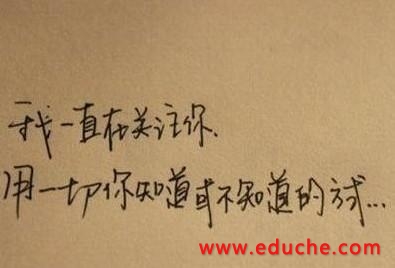 我一直在关注你.
用一切你知道或不知道的方式...
www.eduche.com